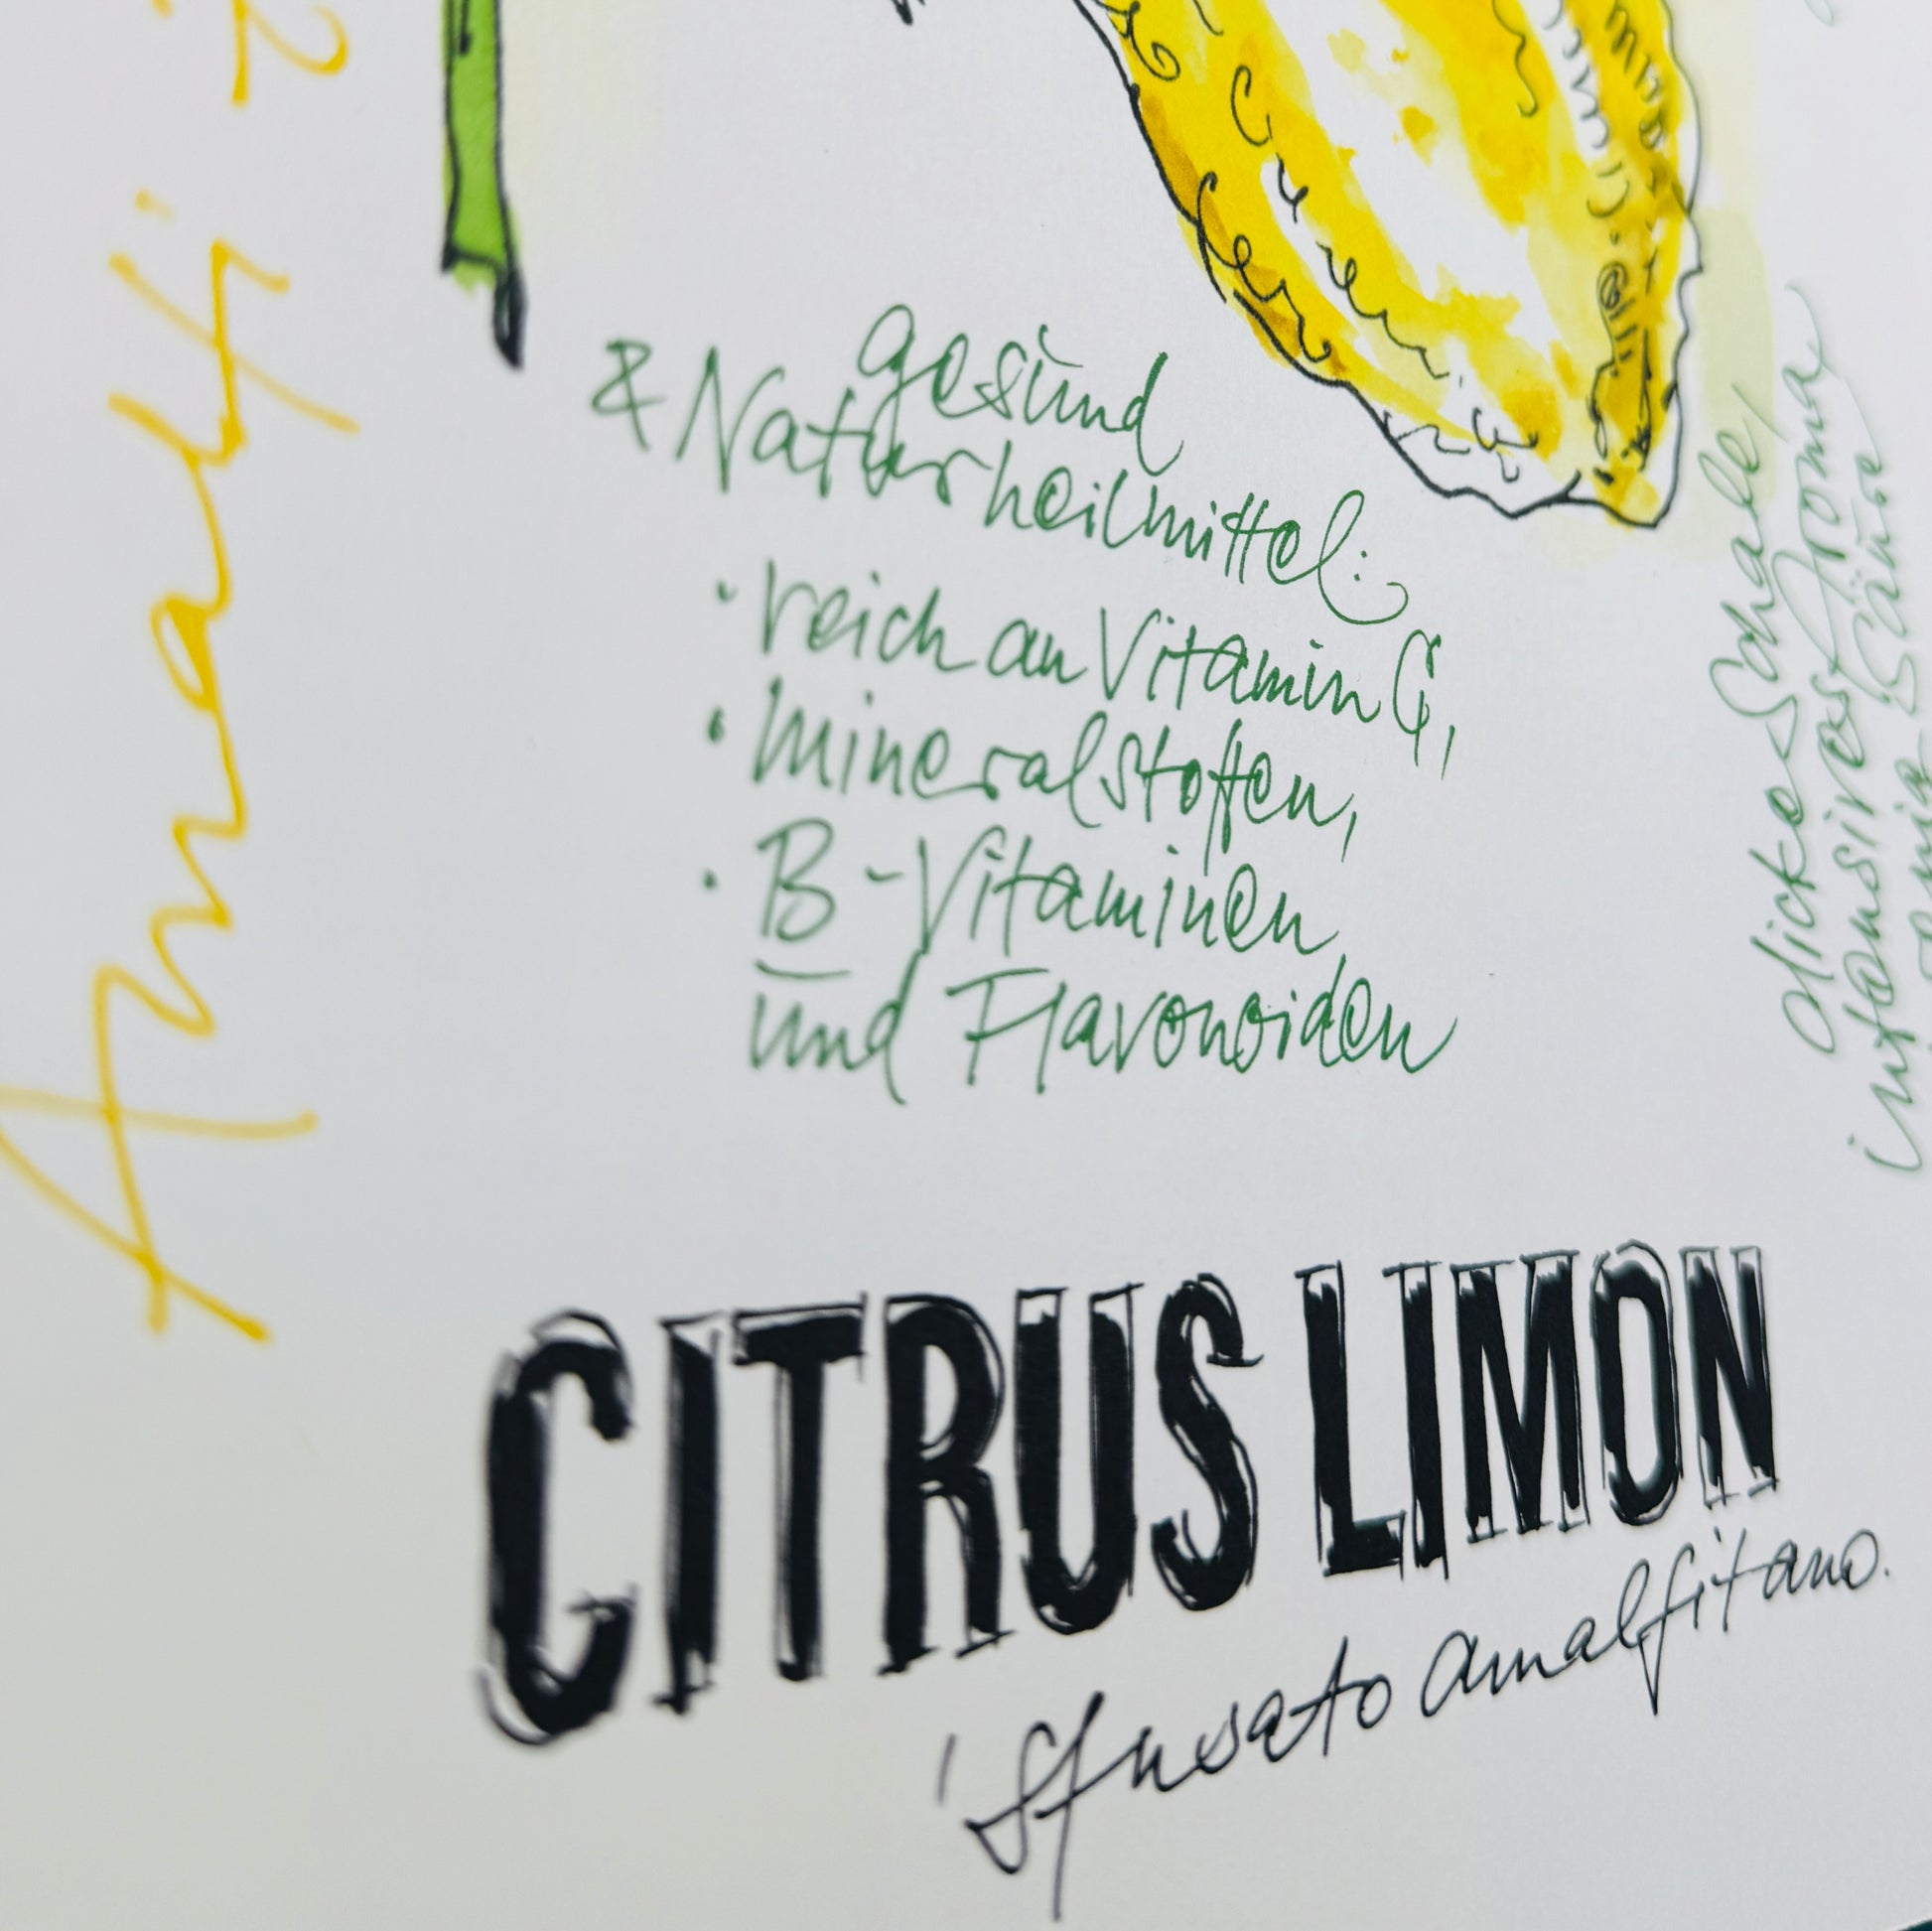 gesund
& Naturheilmittel:
· reich an Vitamin C,
· Mineralstoffen,
· B-Vitaminen
und Flavonoiden
dicke Schale,
intensives Aroma
Säure
Amalfi
CITRUS LIMON
'Sfusato amalfitano.